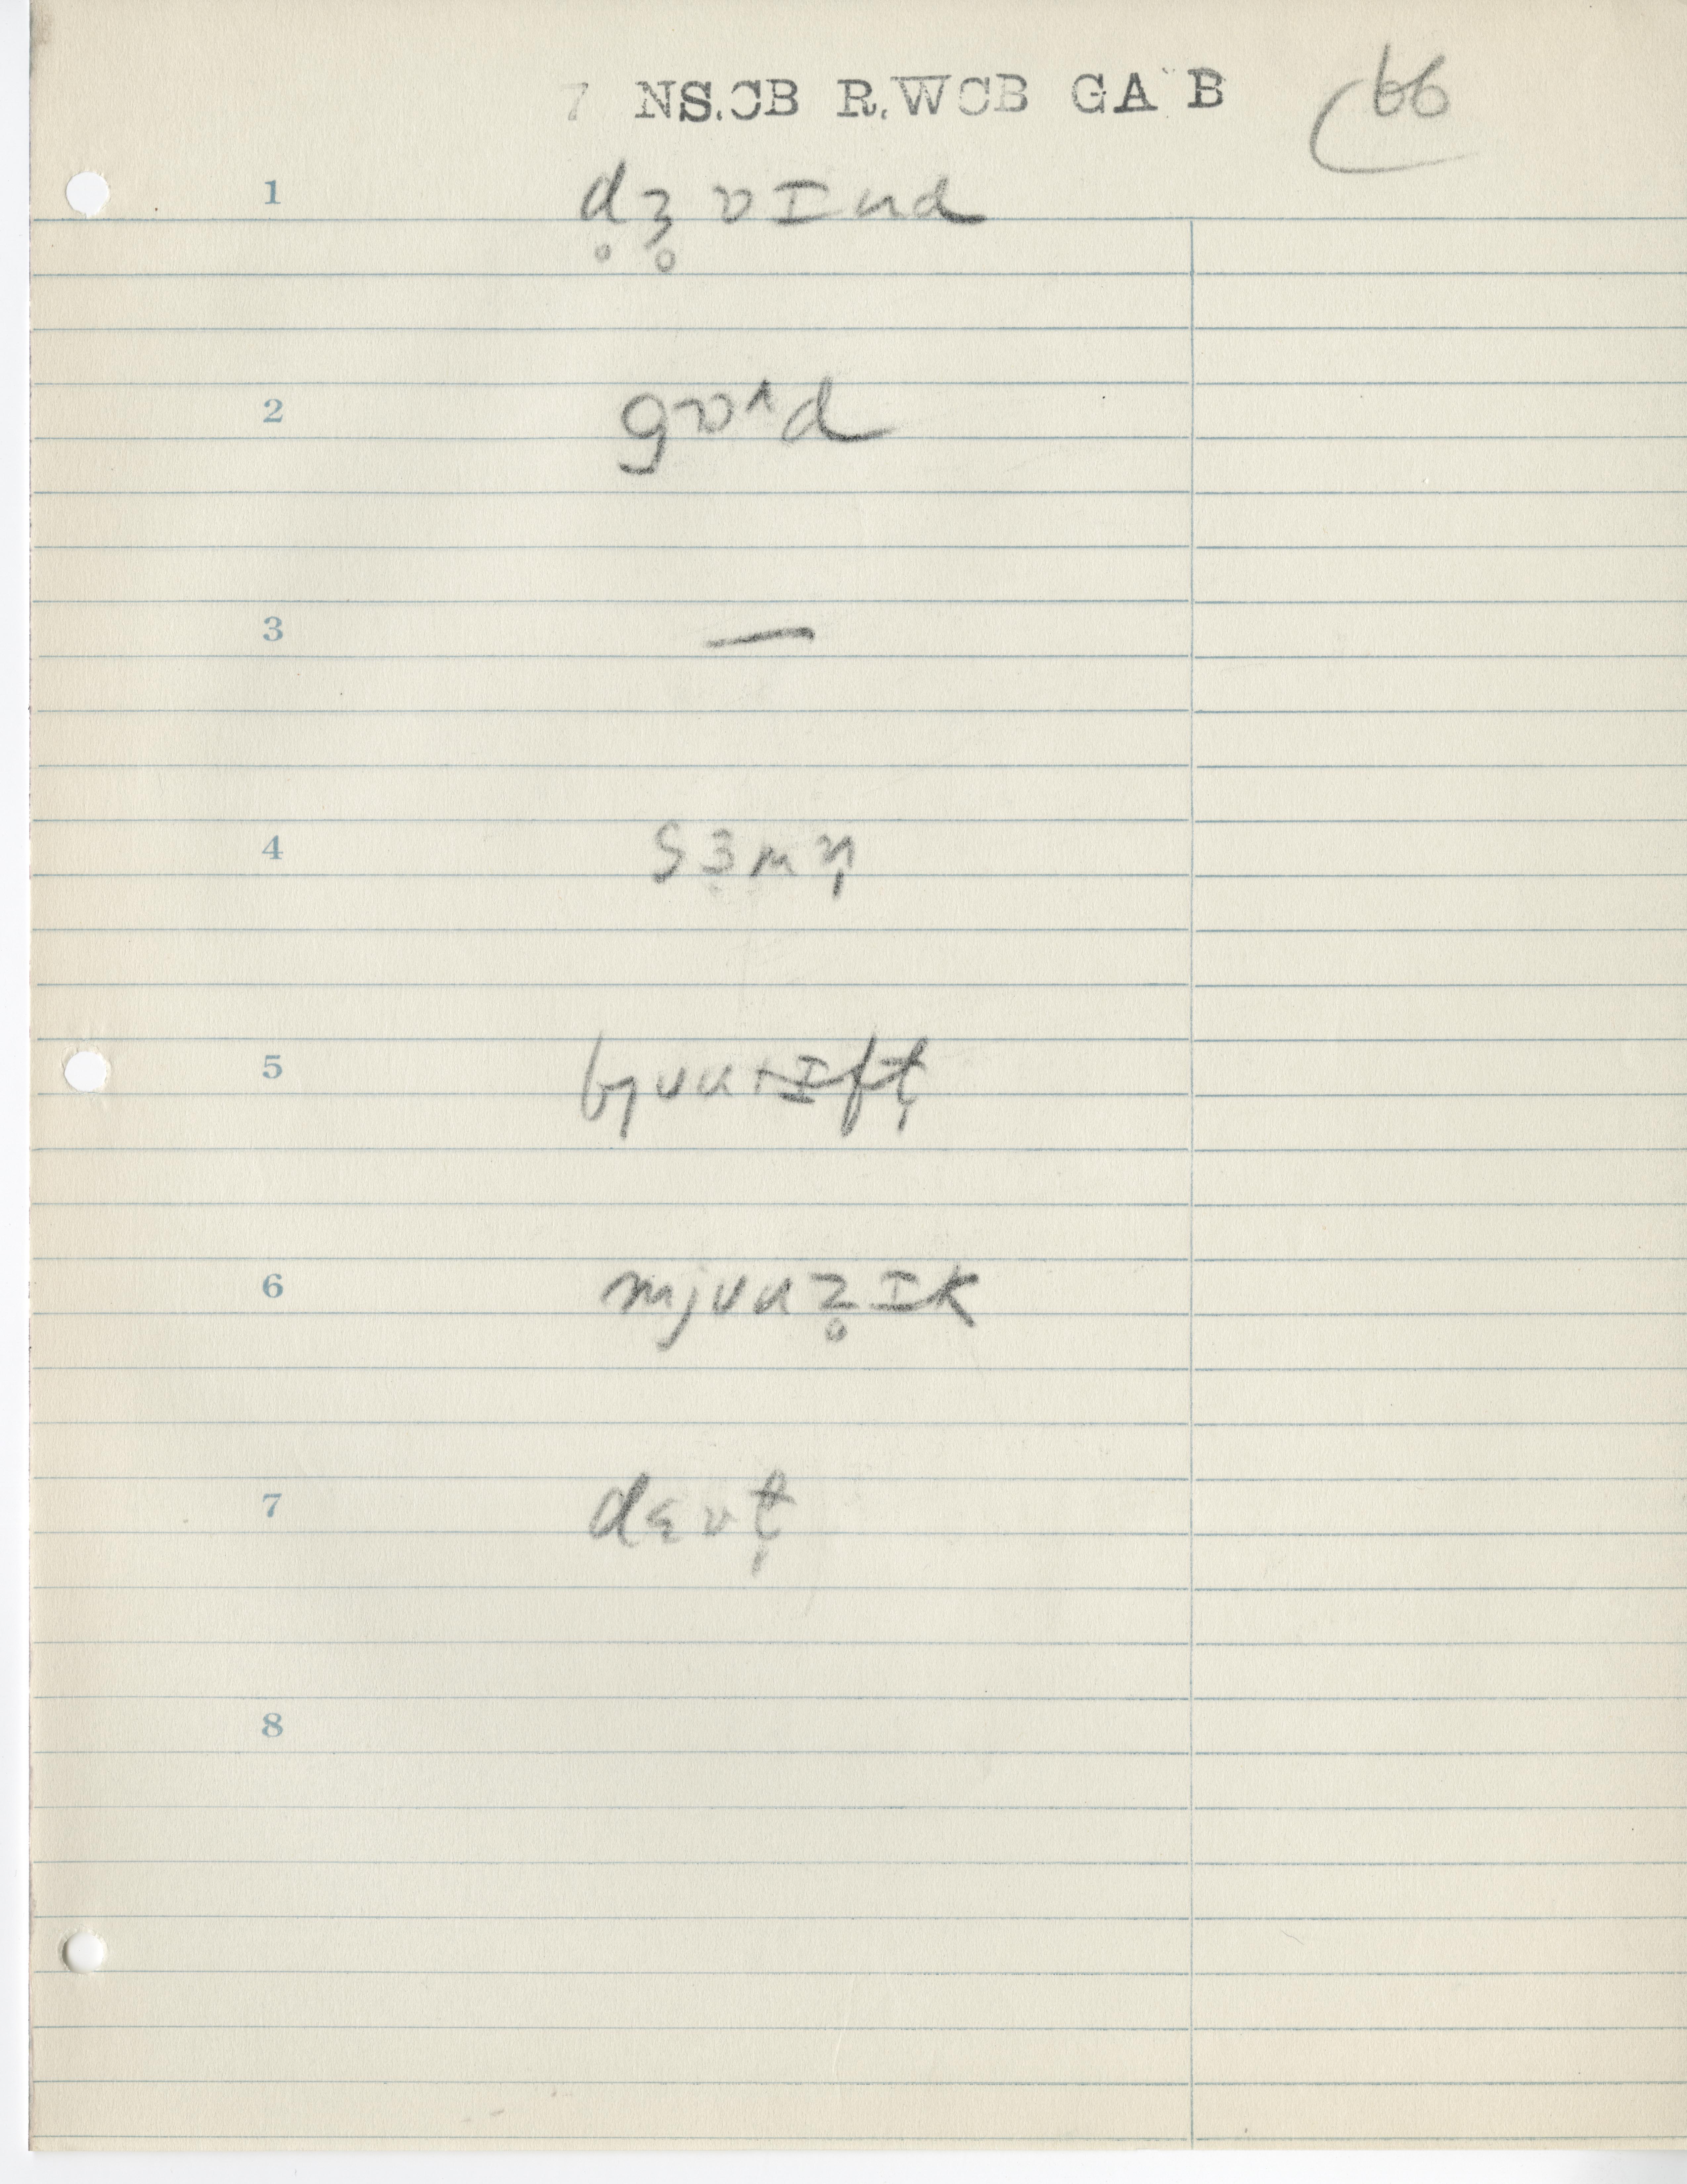 7 NS.CB R.WCB GA B 66
1 d̥ʒ̊ɒɪnd
2 gɒ^d
3 —
4 sɜmn̩
5 bjʊutɪft̩
6 mjʊuz̥ɪk
7 dɛʋt̩
8